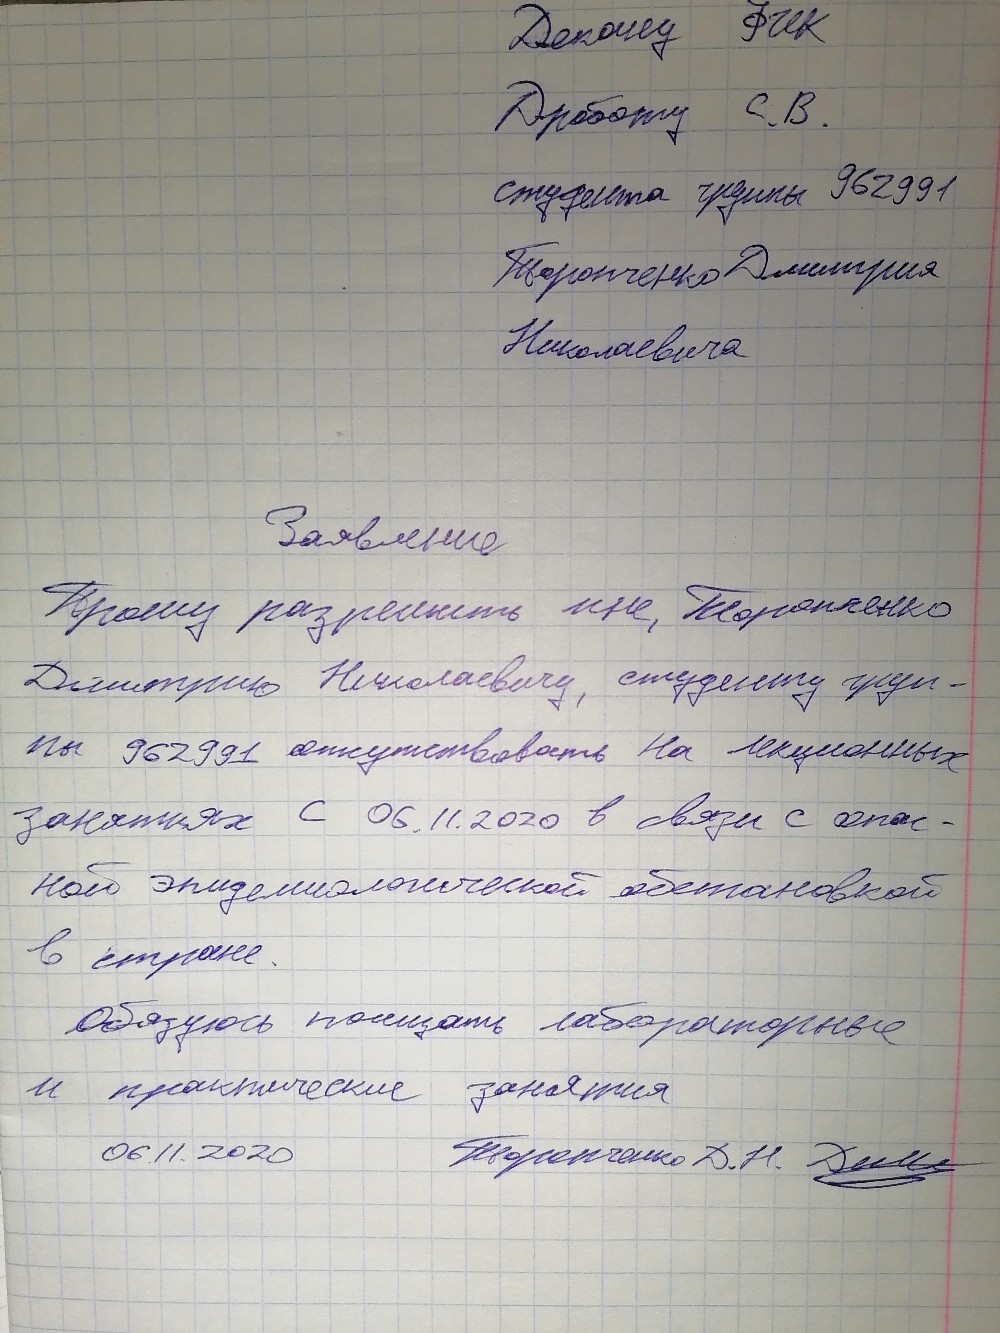 Декану ФИК
Дроботу С.В.
студента группы 962991
Торопченко Дмитрия
Николаевича
Заявление
Прошу разрешить мне, Торопченко
Дмитрию Николаевичу, студенту груп-
пы 962991 отсутствовать на лекционных
занятиях с 06.11.2020 в связи с опас-
ной эпидемиологической обстановкой
в стране.
Обязуюсь посещать лабораторные
и практические занятия
06.11.2020 Торопченко Д.Н.